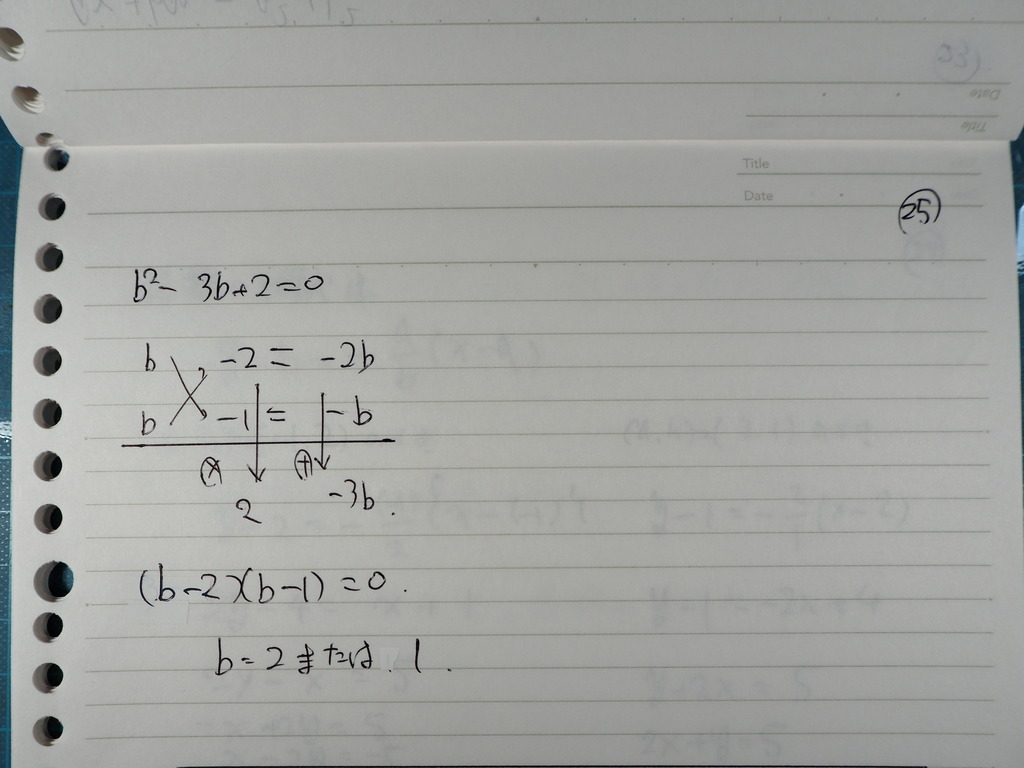 Title
Date
25
b²- 3b+2=0
b -2 = -2b
b -1 = -b
× +
2 -3b.
(b-2)(b-1)=0.
b=2または 1.